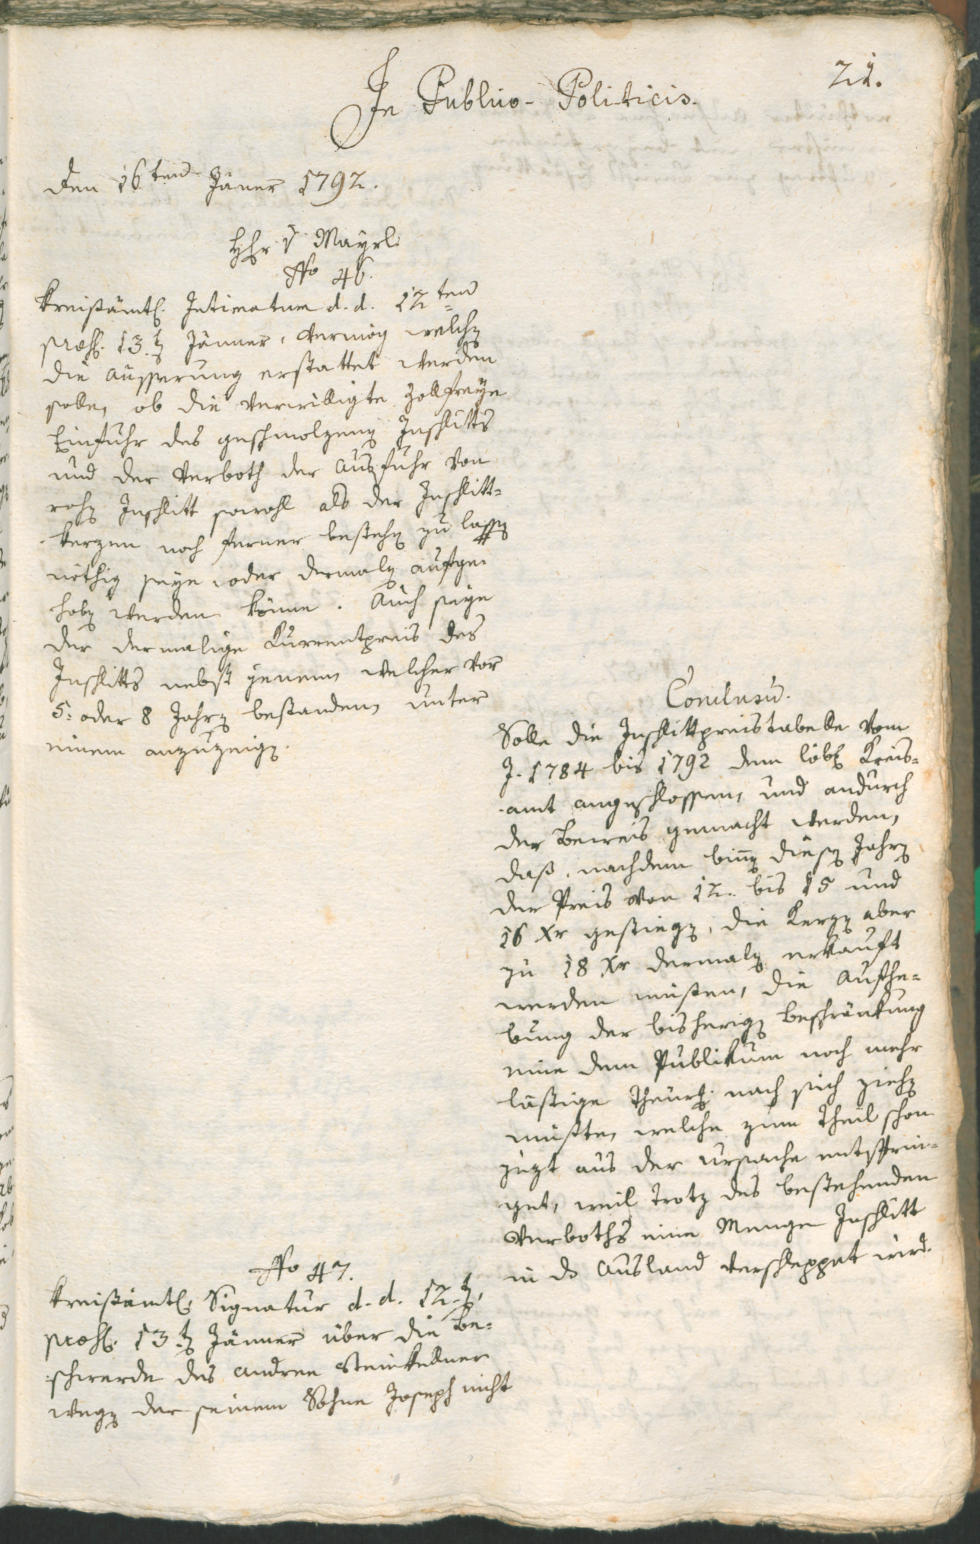 In Publico-Politicis.
21.
Den 16ten Jäner 1792.
Hr v Mayrl
No 46.
Kreißämtl. Intimatum d. d. 12ten
præs. 13.t Jänner, vermög welch
die Äusserung erstattet werden
solle, ob die verwilligte Zollfreye
Einfuhr des geschmolzenen Inschlitts
und der Verboth der Ausfuhr von
rohen Inschlitt sowohl als der Inschlitt-
kerzen noch ferner bestehen zu lassen
nöthig seye oder dermalen aufge-
hoben werden könne. Auch seye
der dermalige Kurrentpreis des
Inschlitts nebst jenem, welcher vor
5. oder 8 Jahren bestanden, unter
einem anzuzeigen.
Conclusum.
Solle die Inschlittpreistabelle vom
J. 1784 bis 1792 dem löbl. Kreis-
amt angeschlossen, und andurch
der Beweis gemacht werden,
daß, nachdem binnen diesen Jahren
der Preis von 12. bis 15 und
16 Xr gestiegen, die Kerzen aber
zu 18 Xr dermalen erkauft
werden müßen, die Aufhe-
bung der bisherigen Beschränkung
eine dem Publikum noch mehr
lästige Theurung nach sich ziehen
müßte, welche zum Theil schon
jezt aus der Ursache entsprin-
get, weil trotz des bestehenden
Verboths eine Menge Inschlitt
in das Ausland verschleppet wird.
No 47.
Kreißämtl. Signatur d. d. 12.t,
præs. 13.t Jänner über die Be-
schwerde des Andree Steinkellner
wegen der seinem Sohne Joseph nicht